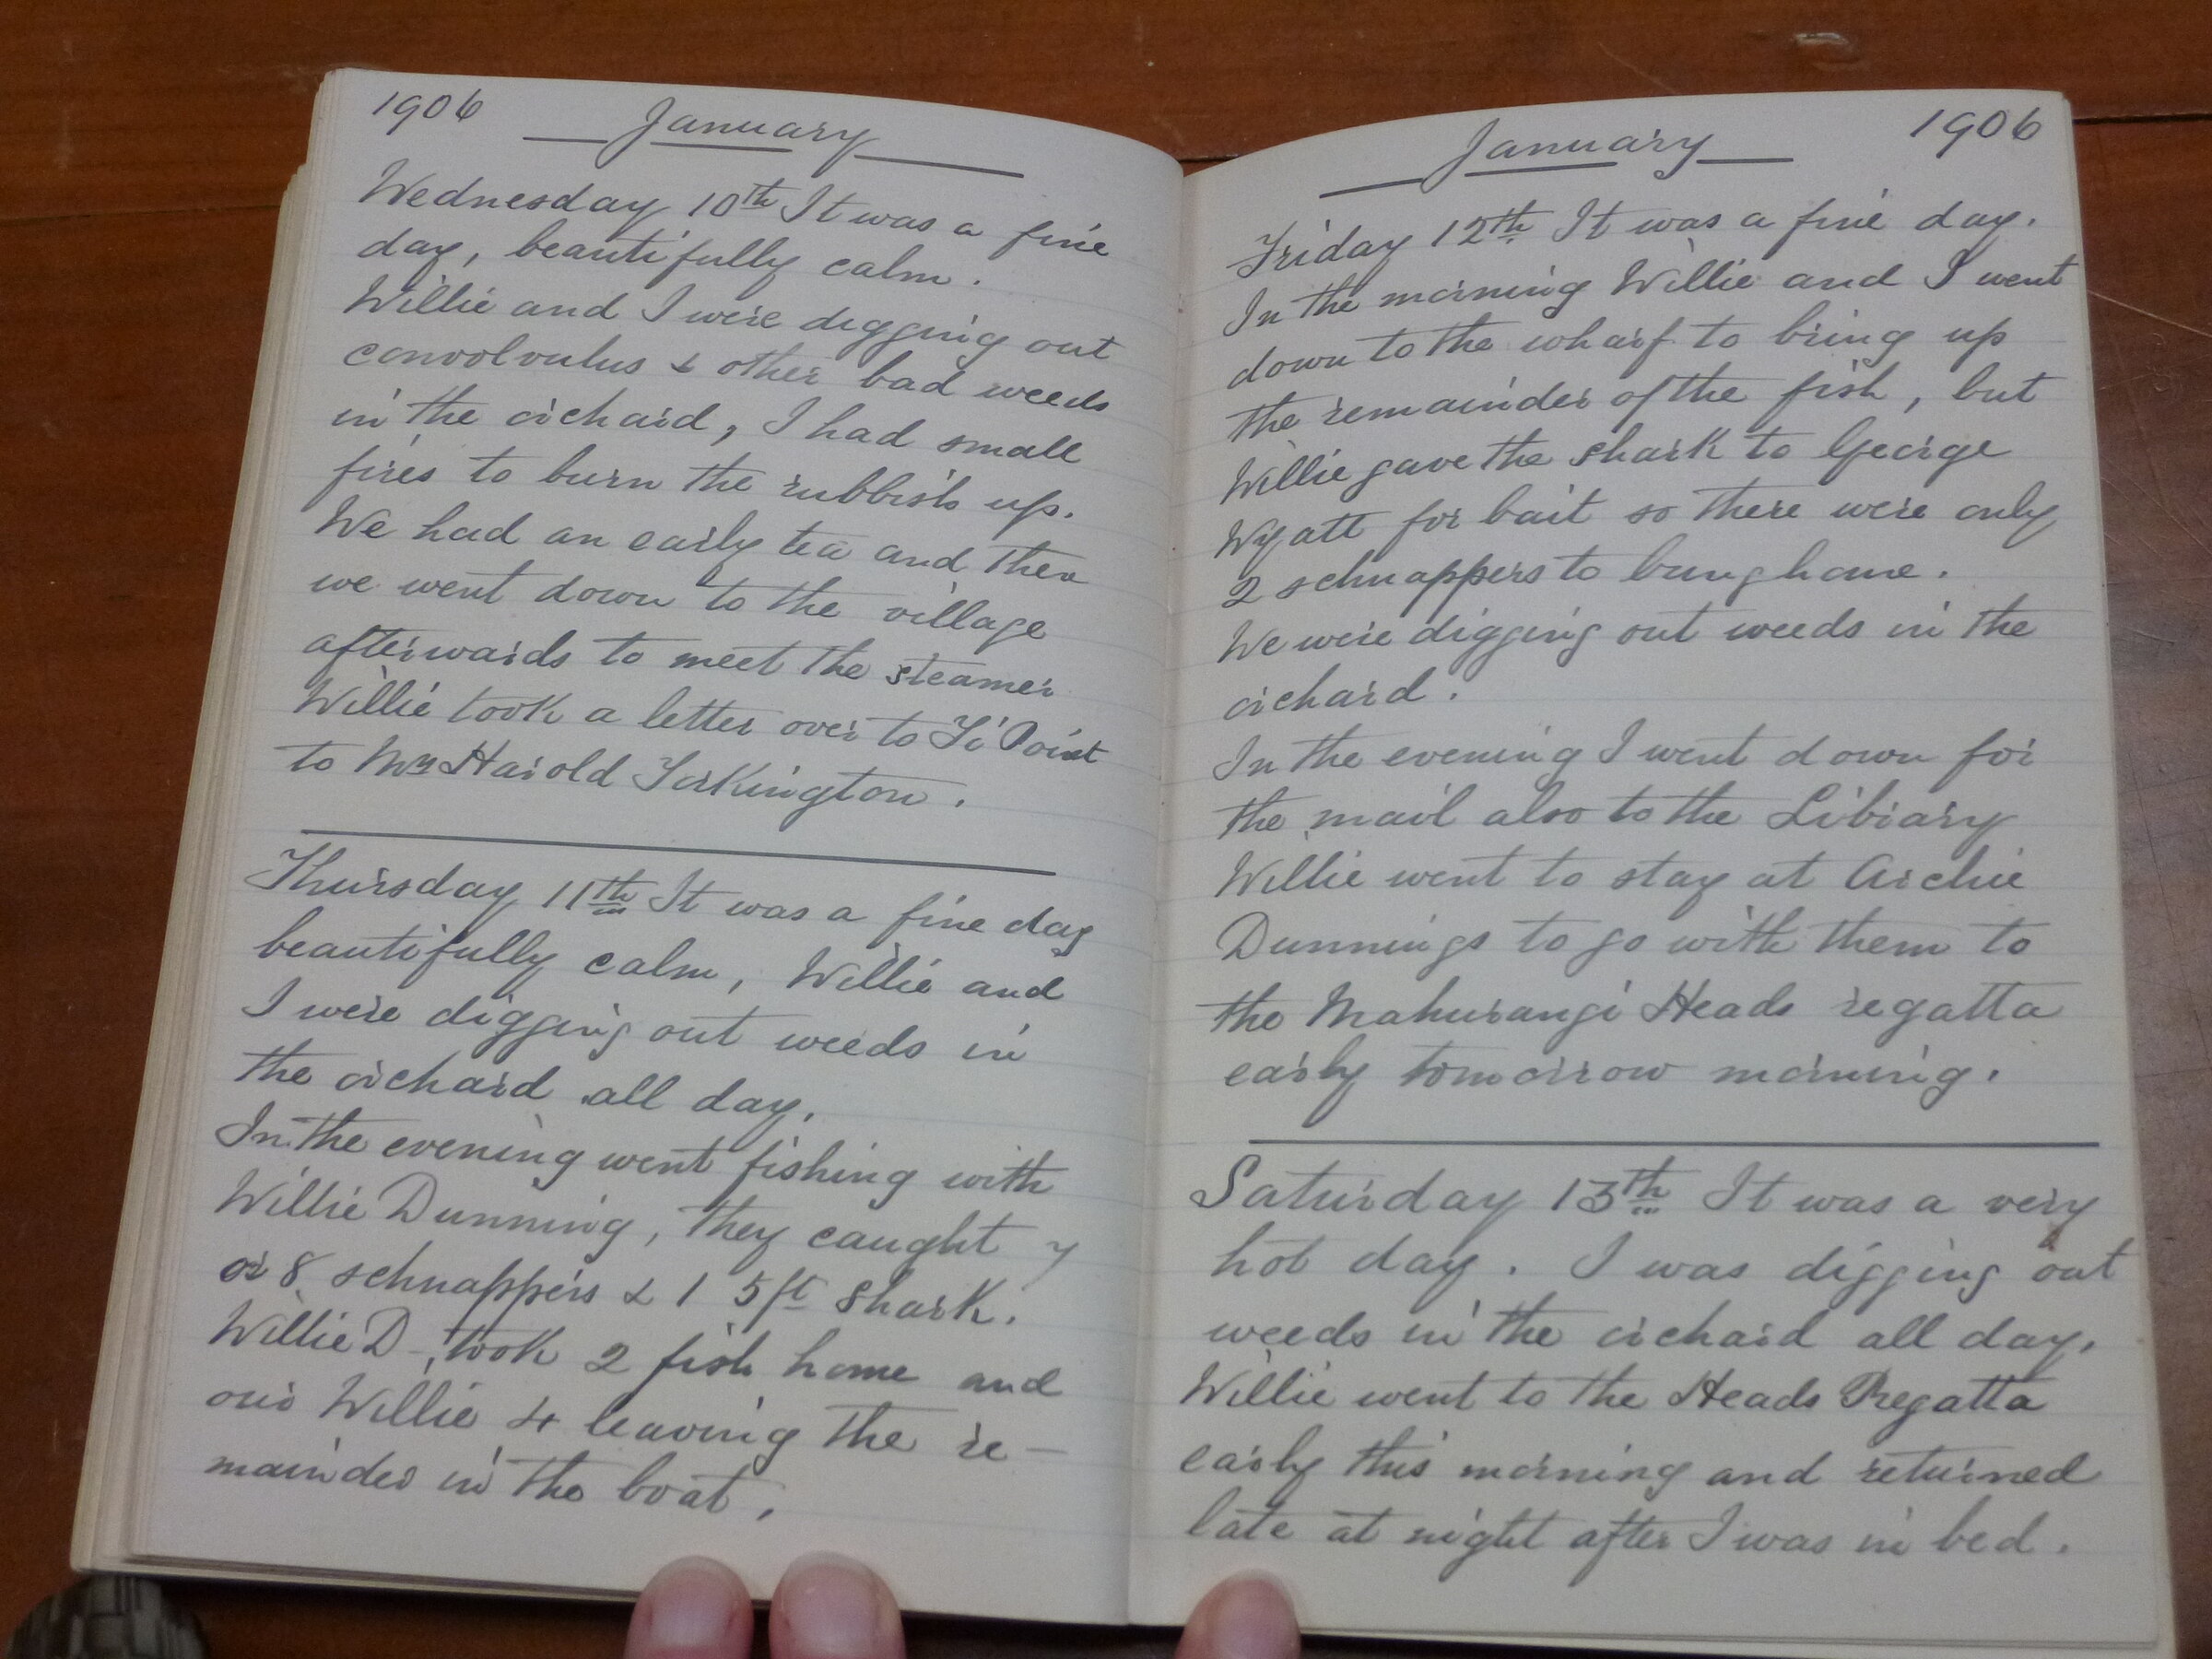 1906 January
Wednesday 10th It was a fine
day, beautifully calm.
Willie and I were digging out
convolvulus & other bad weeds
in the orchard, I had small
fires to burn the rubbish up.
We had an early tea and then
we went down to the village
afterwards to meet the steamer
Willie took a letter over to Ti Point
to Mrs Harold Torkington.
Thursday 11th It was a fine day
beautifully calm, Willie and
I were digging out weeds in
the orchard all day.
In the evening went fishing with
Willie Dunning, they caught 7
or 8 schnappers & 1 5ft shark.
Willie D, took 2 fish home and
our Willie 4 leaving the re-
mainder in the boat.
January 1906
Friday 12th It was a fine day.
In the morning Willie and I went
down to the wharf to bring up
the remainder of the fish, but
Willie gave the shark to George
Wyatt for bait so there were only
2 schnappers to bring home.
We were digging out weeds in the
orchard.
In the evening I went down for
the mail also to the Library
Willie went to stay at Archie
Dunnings to go with them to
the Mahurangi Heads regatta
early tomorrow morning.
Saturday 13th It was a very
hot day. I was digging out
weeds in the orchard all day.
Willie went to the Heads Regatta
early this morning and returned
late at night after I was in bed.